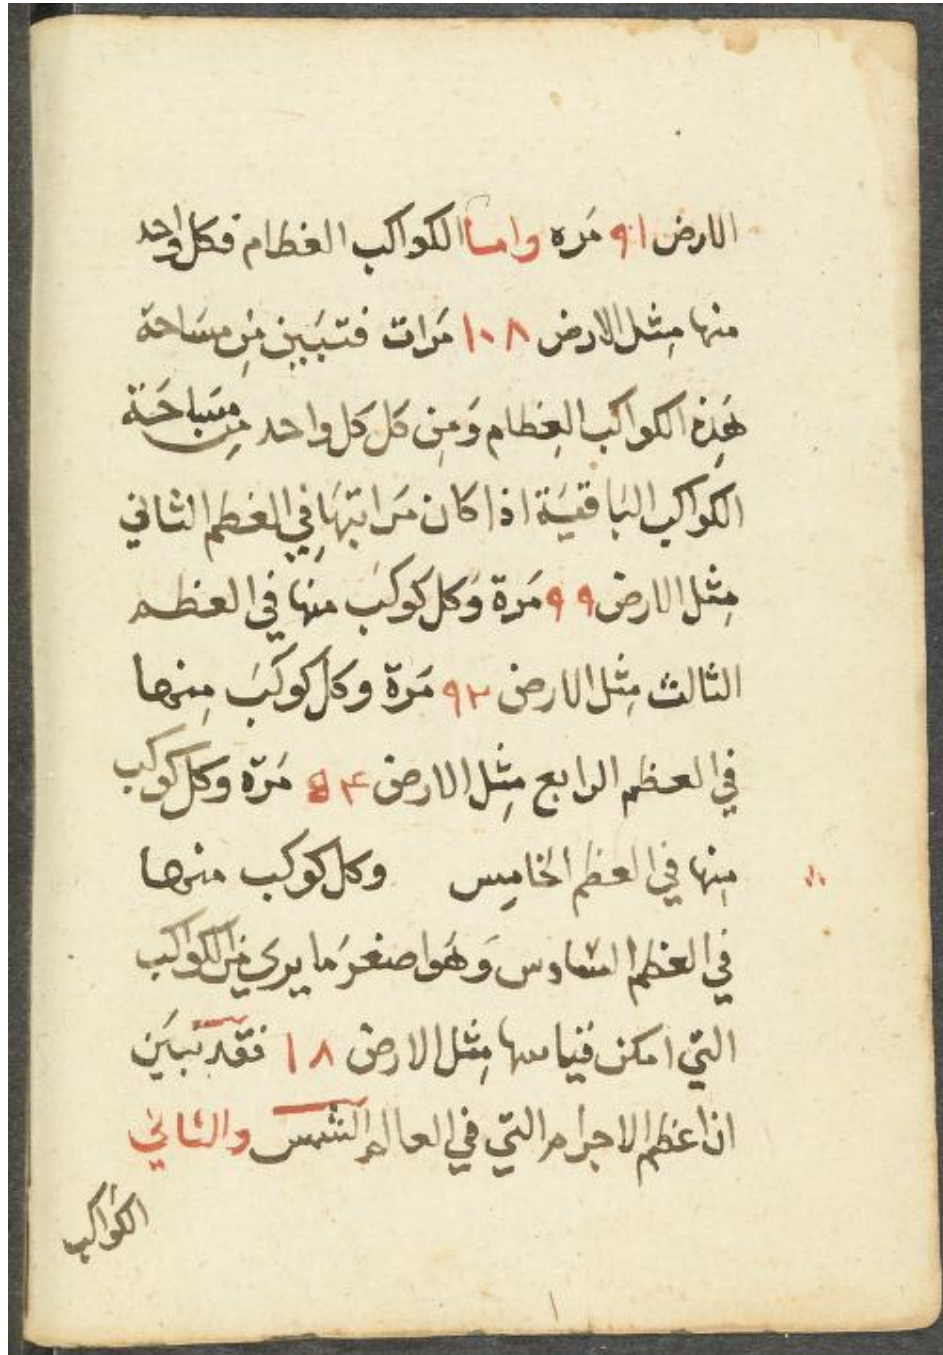 الارض ٩١ مَره واما الكواكب العظام فكل واحد
منها مِثل الارض ١٠٨ مَرات فتبَيين مِن مسَاحة
هَذِه الكواكب العِظام وَمِن كل كل واحد مِن مسَاحَة
الكواكب البَاقيَة اذا كان مَراتبَها فِي العظم الثاني
مِثل الارض ٩٩ مَرة وَكل كوكبَ منها في العظم
الثالث مِثل الارض ٩٢ مَرة وكل كوكبَ مِنها
في العظم الرابع مِثل الارض مَرّة وكل كوكب
مِنها في العظم الخامِس وكل كوكب منها
في العظم السادس وَهَو اصغر مَا يرى مِن الكواكب
التي امكن قياسها مِثل الارض ١٨ فقد تبيَن
ان اعظم الاجرام التي في العالم الشمس والثاني
الكواكب